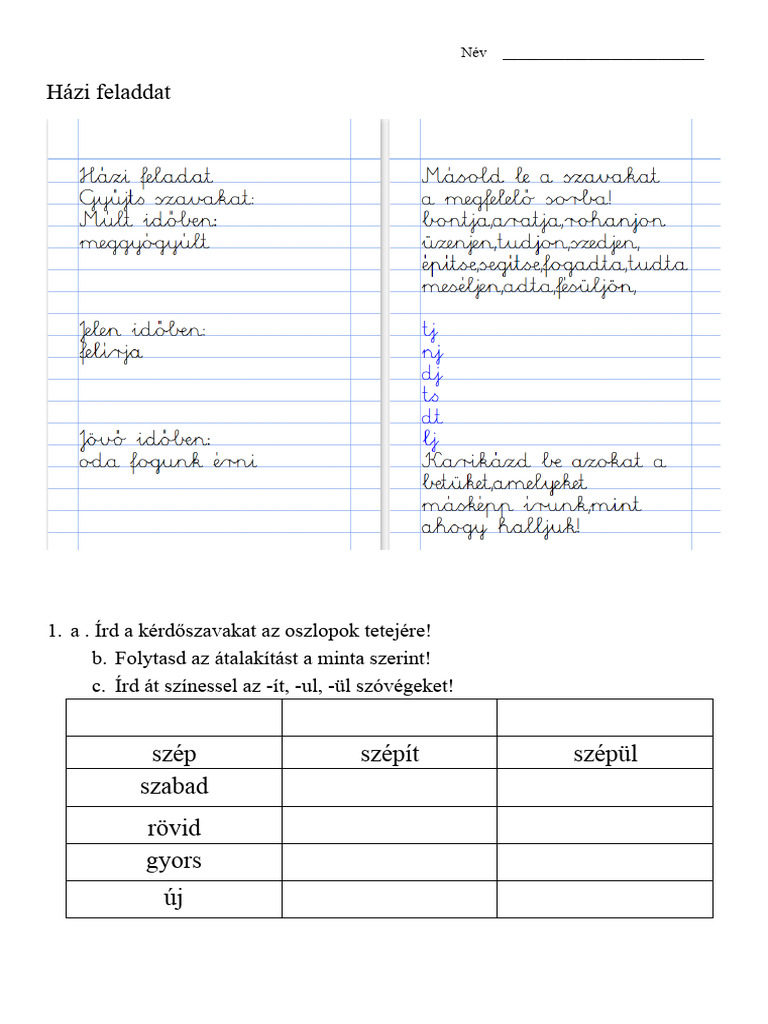 Név ___________________________
Házi feladdat
Házi feladat
Gyűjts szavakat:
Múlt időben:
meggyógyúlt
Jelen időben:
felírja
Jövő időben:
oda fogunk érni
Másold le a szavakat
a megfelelő sorba!
bontja,aratja,rohanjon
üzenjen,tudjon,szedjen,
építse,segítse,fogadta,tudta
meséljen,adta,fésüljön,
tj
nj
dj
ts
dt
lj
Karikázd be azokat a
betűket,amelyeket
másképp írunk,mint
ahogy halljuk!
1. a . Írd a kérdőszavakat az oszlopok tetejére!
b. Folytasd az átalakítást a minta szerint!
c. Írd át színessel az -ít, -ul, -ül szóvégeket!
szép szépít szépül
szabad
rövid
gyors
új